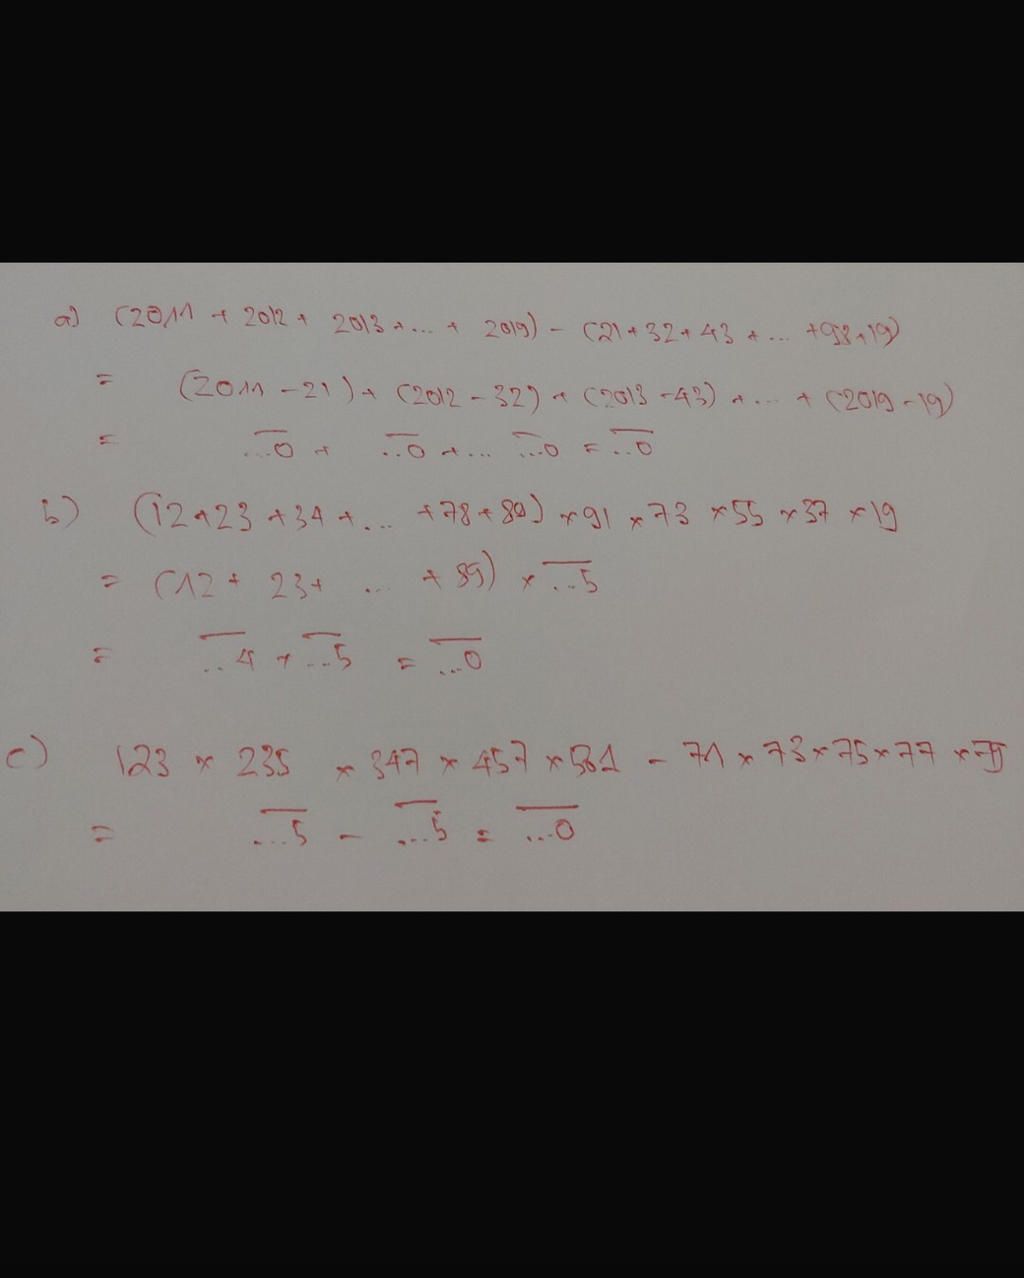 a) (2011 + 2012 + 2013 + ... + 2019) - (21 + 32 + 43 + ... + 98 + 19)
= (2011 - 21) + (2012 - 32) + (2013 - 43) + ... + (2019 - 19)
= \overline{...0} + \overline{...0} + ... \overline{...0} = \overline{...0}
b) (12 + 23 + 34 + ... + 78 + 89) × 91 × 73 × 55 × 37 × 19
= (12 + 23 + ... + 89) × \overline{...5}
= \overline{...4} × \overline{...5} = \overline{...0}
c) 123 × 235 × 347 × 457 × 561 - 71 × 73 × 75 × 77 × 79
= \overline{...5} - \overline{...5} = \overline{...0}